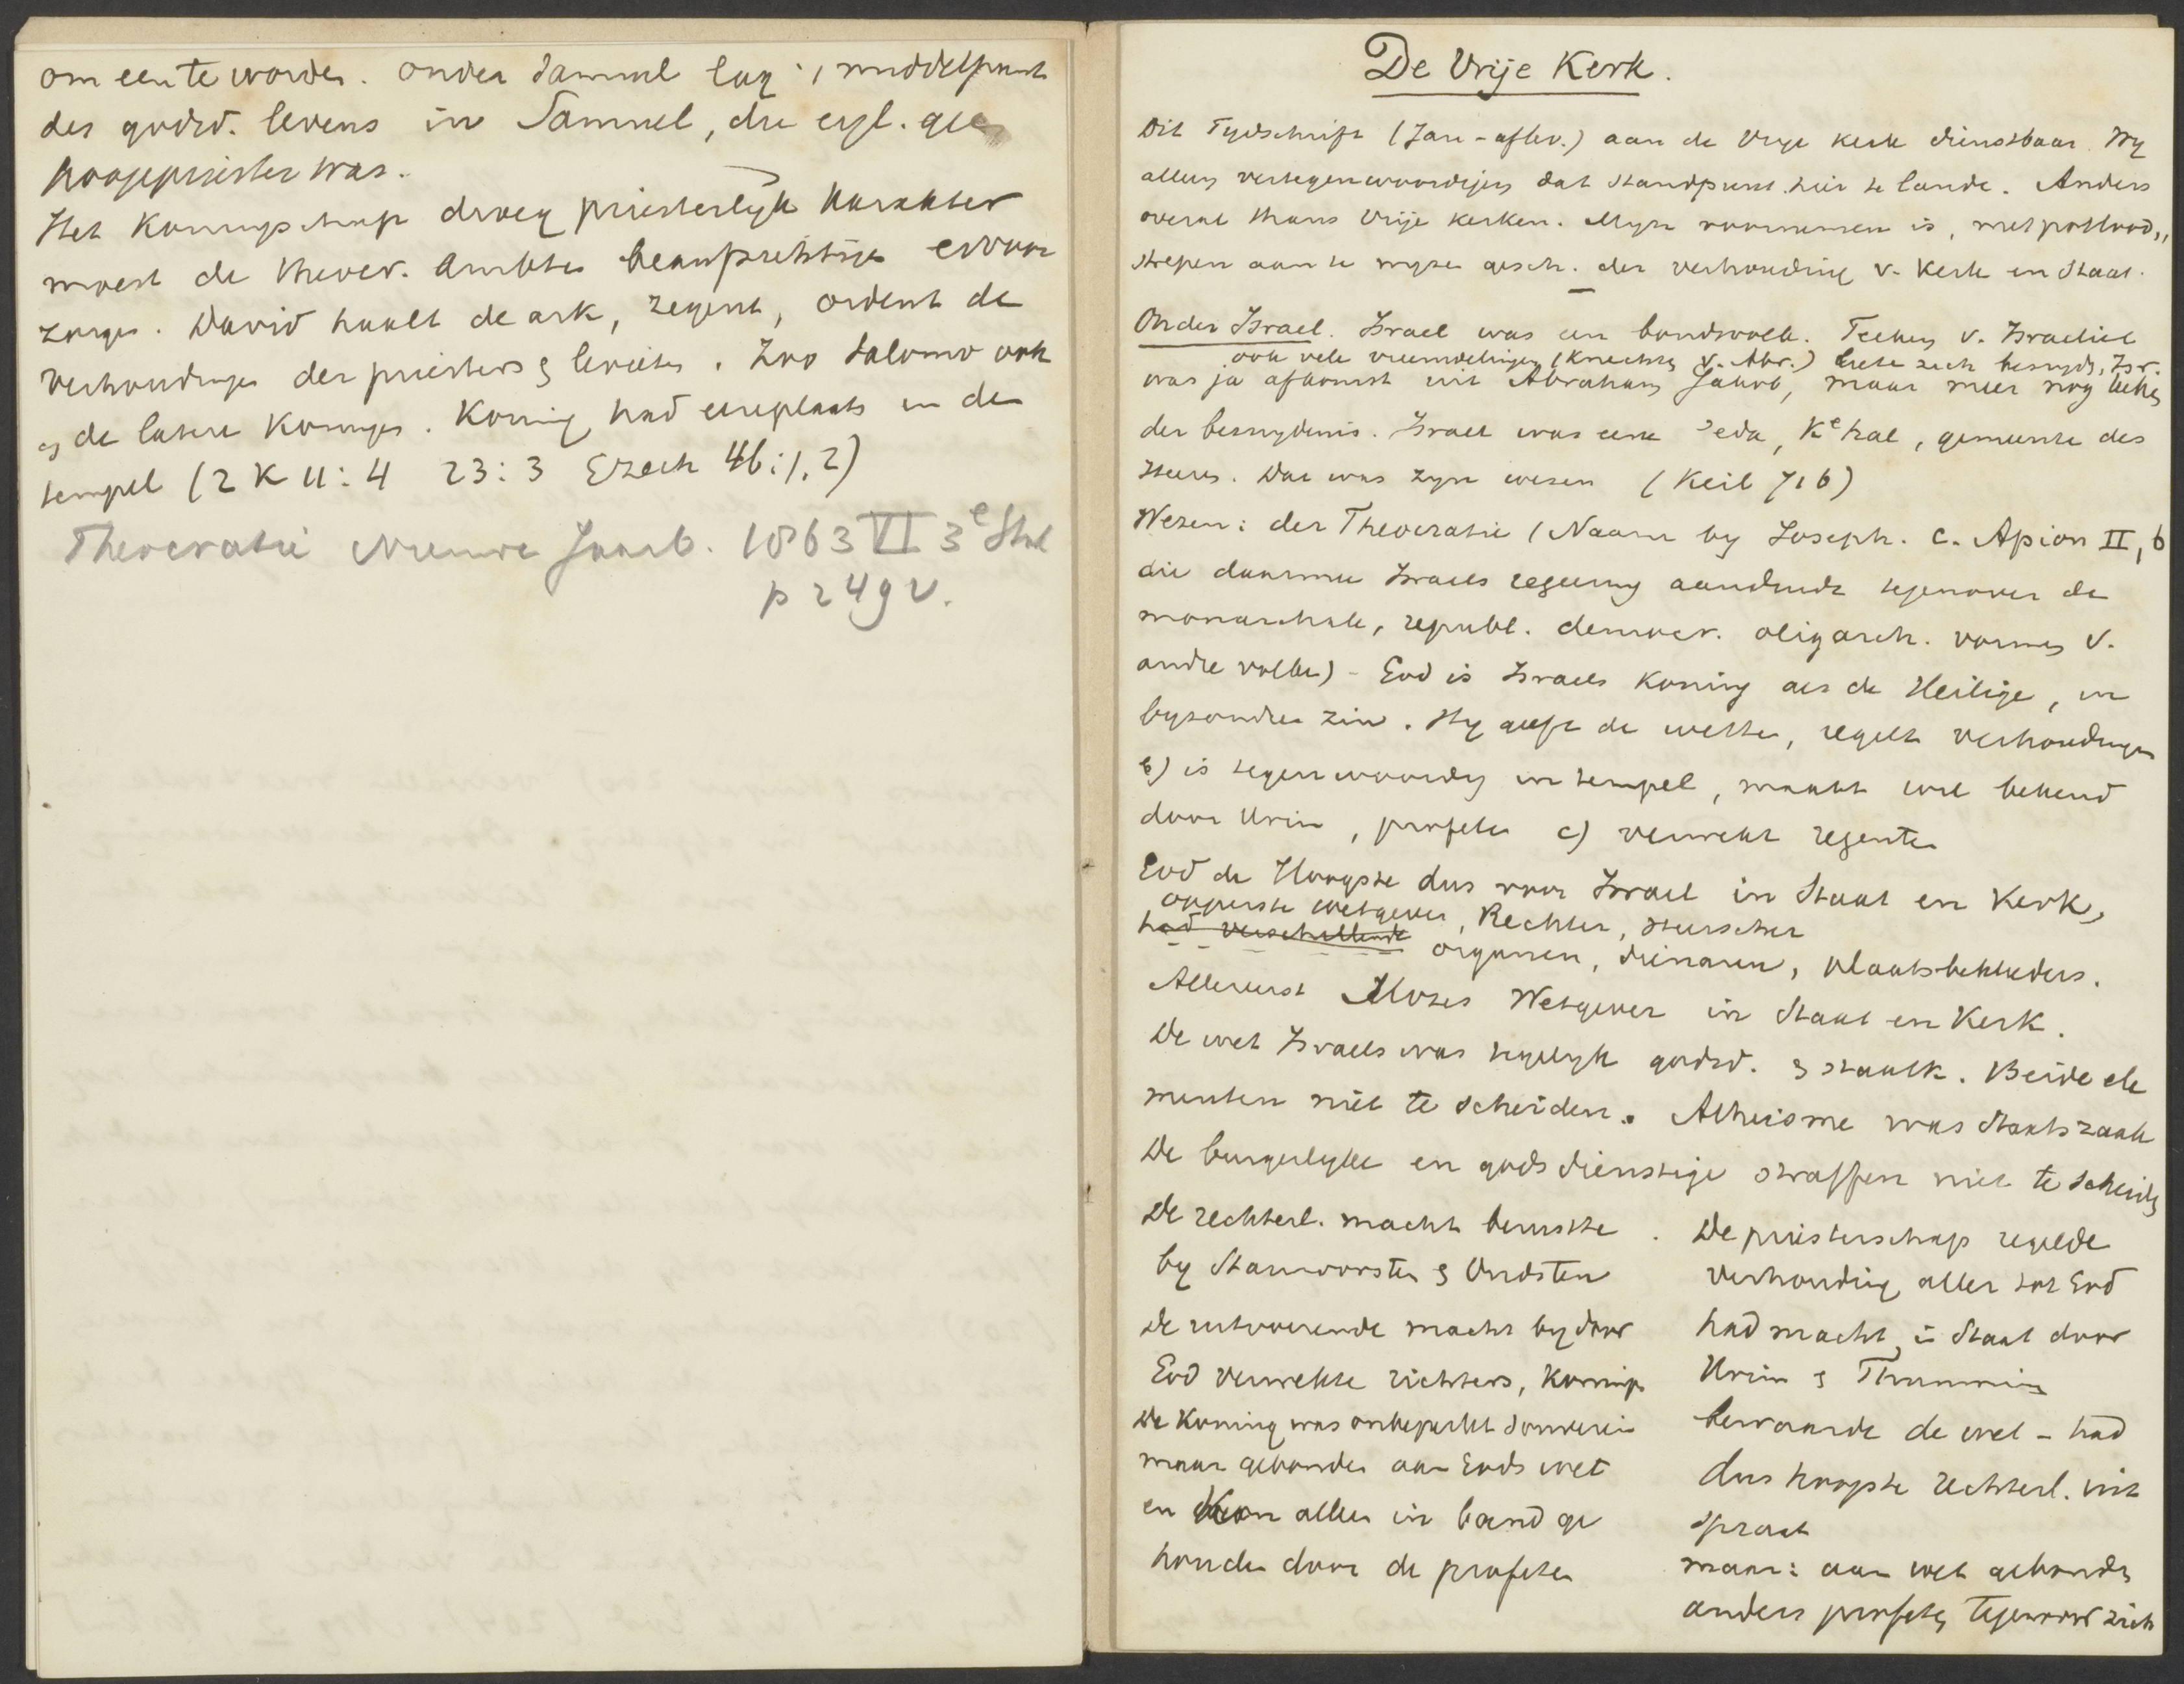 om een te worden. Onder Samuel lag 't middelpunt
des godsd. levens in Samuel, die eigl. geen
hoogepriester was.
Het Koningschap droeg priesterlyk karakter
moest de theocr. ambten beaufsichtigen ervoor
zorgen. David haalt de ark, zegent, ordent de
verhoudingen der priesters & levieten. Zoo Salomo ook
& de latere Koningen. Koning had eereplaats in den
tempel (2 K 11:4 23:3 Ezech 46:1.2)
Theocratie Nieuwe Jaarb. 1863 VI 3e Stuk
p 249 v.
De Vrije Kerk.
Dit Tydschrift (Jan-aflev.) aan de Vrye Kerk dienstbaar. Wy
alleen vertegenwoordigen dat standpunt hier te lande. Anders
overal thans Vrije Kerken. Myn voornemen is, met potlood,,
strepen aan te wyzen gesch. der verhouding v. Kerk en Staat.
Onder Israel. Israel was een bondsvolk. Teeken v. Israeliet
ook vele vreemdelingen (Knechten v. Abr.) lieten zich besnyden, Isr.
was ja afkomst uit Abraham Jakob, maar meer nog teeken
der besnydenis. Israel was eene 'eda, Kehal, gemeente des
Heeren. Dat was zyn wezen (Keil 716)
Wezen: der Theocratie (Naam by Joseph. c. Apion II, 6
die daarmee Israels regeering aanduidt tegenover de
monarchale, republ. democr. oligarch. vormen v.
andre volken) - God is Israels Koning als de Heilige, in
byzondren zin. Hy geeft de wetten, regelt verhoudingen
b) is tegenwoordig in tempel, maakt wil bekend
door Urim, profeten c) verwekt regenten
God de Hoogste dus voor Israel in Staat en Kerk,
opperste wetgever, Rechter, Heerscher
had verschillende organen, dienaren, plaatsbekleeders.
Allereerst Mozes Wetgever in Staat en Kerk.
De wet Israels was tegelyk godsd. & staatk. Beide ele
menten niet te scheiden. Atheisme was Staatszaak
De burgerlyke en godsdienstige straffen niet te scheiden
De rechterl. macht berustte
by Stamvorsten & Oudsten
De uitvoerende macht by door
God verwekte richters, Koningen
De Koning was onbeperkt souverein
maar gebonden aan Gods wet
en kon alleen in band ge
houden door de profeten
De priesterschap regelde
verhouding aller tot God
had macht in Staat door
Urim & Thummim
bewaarde de wet - had
dus hoogste rechterl. uit
spraak
maar: aan wet gebonden
anders profeten tegenover zich